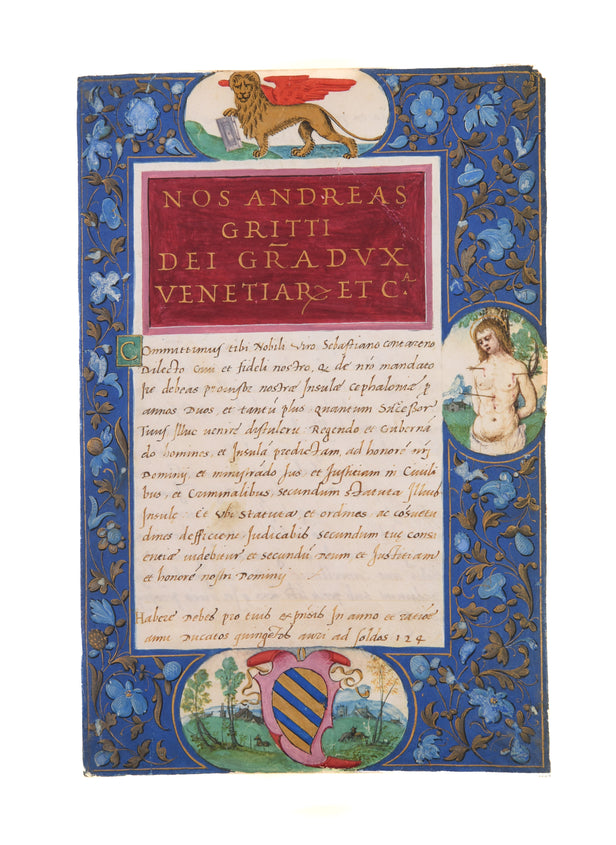 NOS ANDREAS
GRITTI
DEI GRA DVX
VENETIAR ET CA.
Committimus tibi Nobili viro Sebastiano contareno
Dilecto Civi et fideli nostro, & de nro mandato
Ire debeas provisor nostræ Insulæ Cephaloniæ p
annos Duos, et tantu plus, Quantum Successor
Tuus illuc venire distulerit Regendo et Guberna
do homines, et Insula predictam, ad honore nri
Dominij et ministrado Jus, et Justitiam in Civili
bus, et Criminalibus, secundum statuta Illius
Insule: Et ubi Statuta et ordines, ac cosuetu
dines defficient, Judicabis secundum tuę consi
entiæ videbitur et secundu Deum et Justitiam
et honore nostri Dominij
Habere Debes pro tuis expesis In anno et
anni Ducatos quingetos auri ad soldos 124